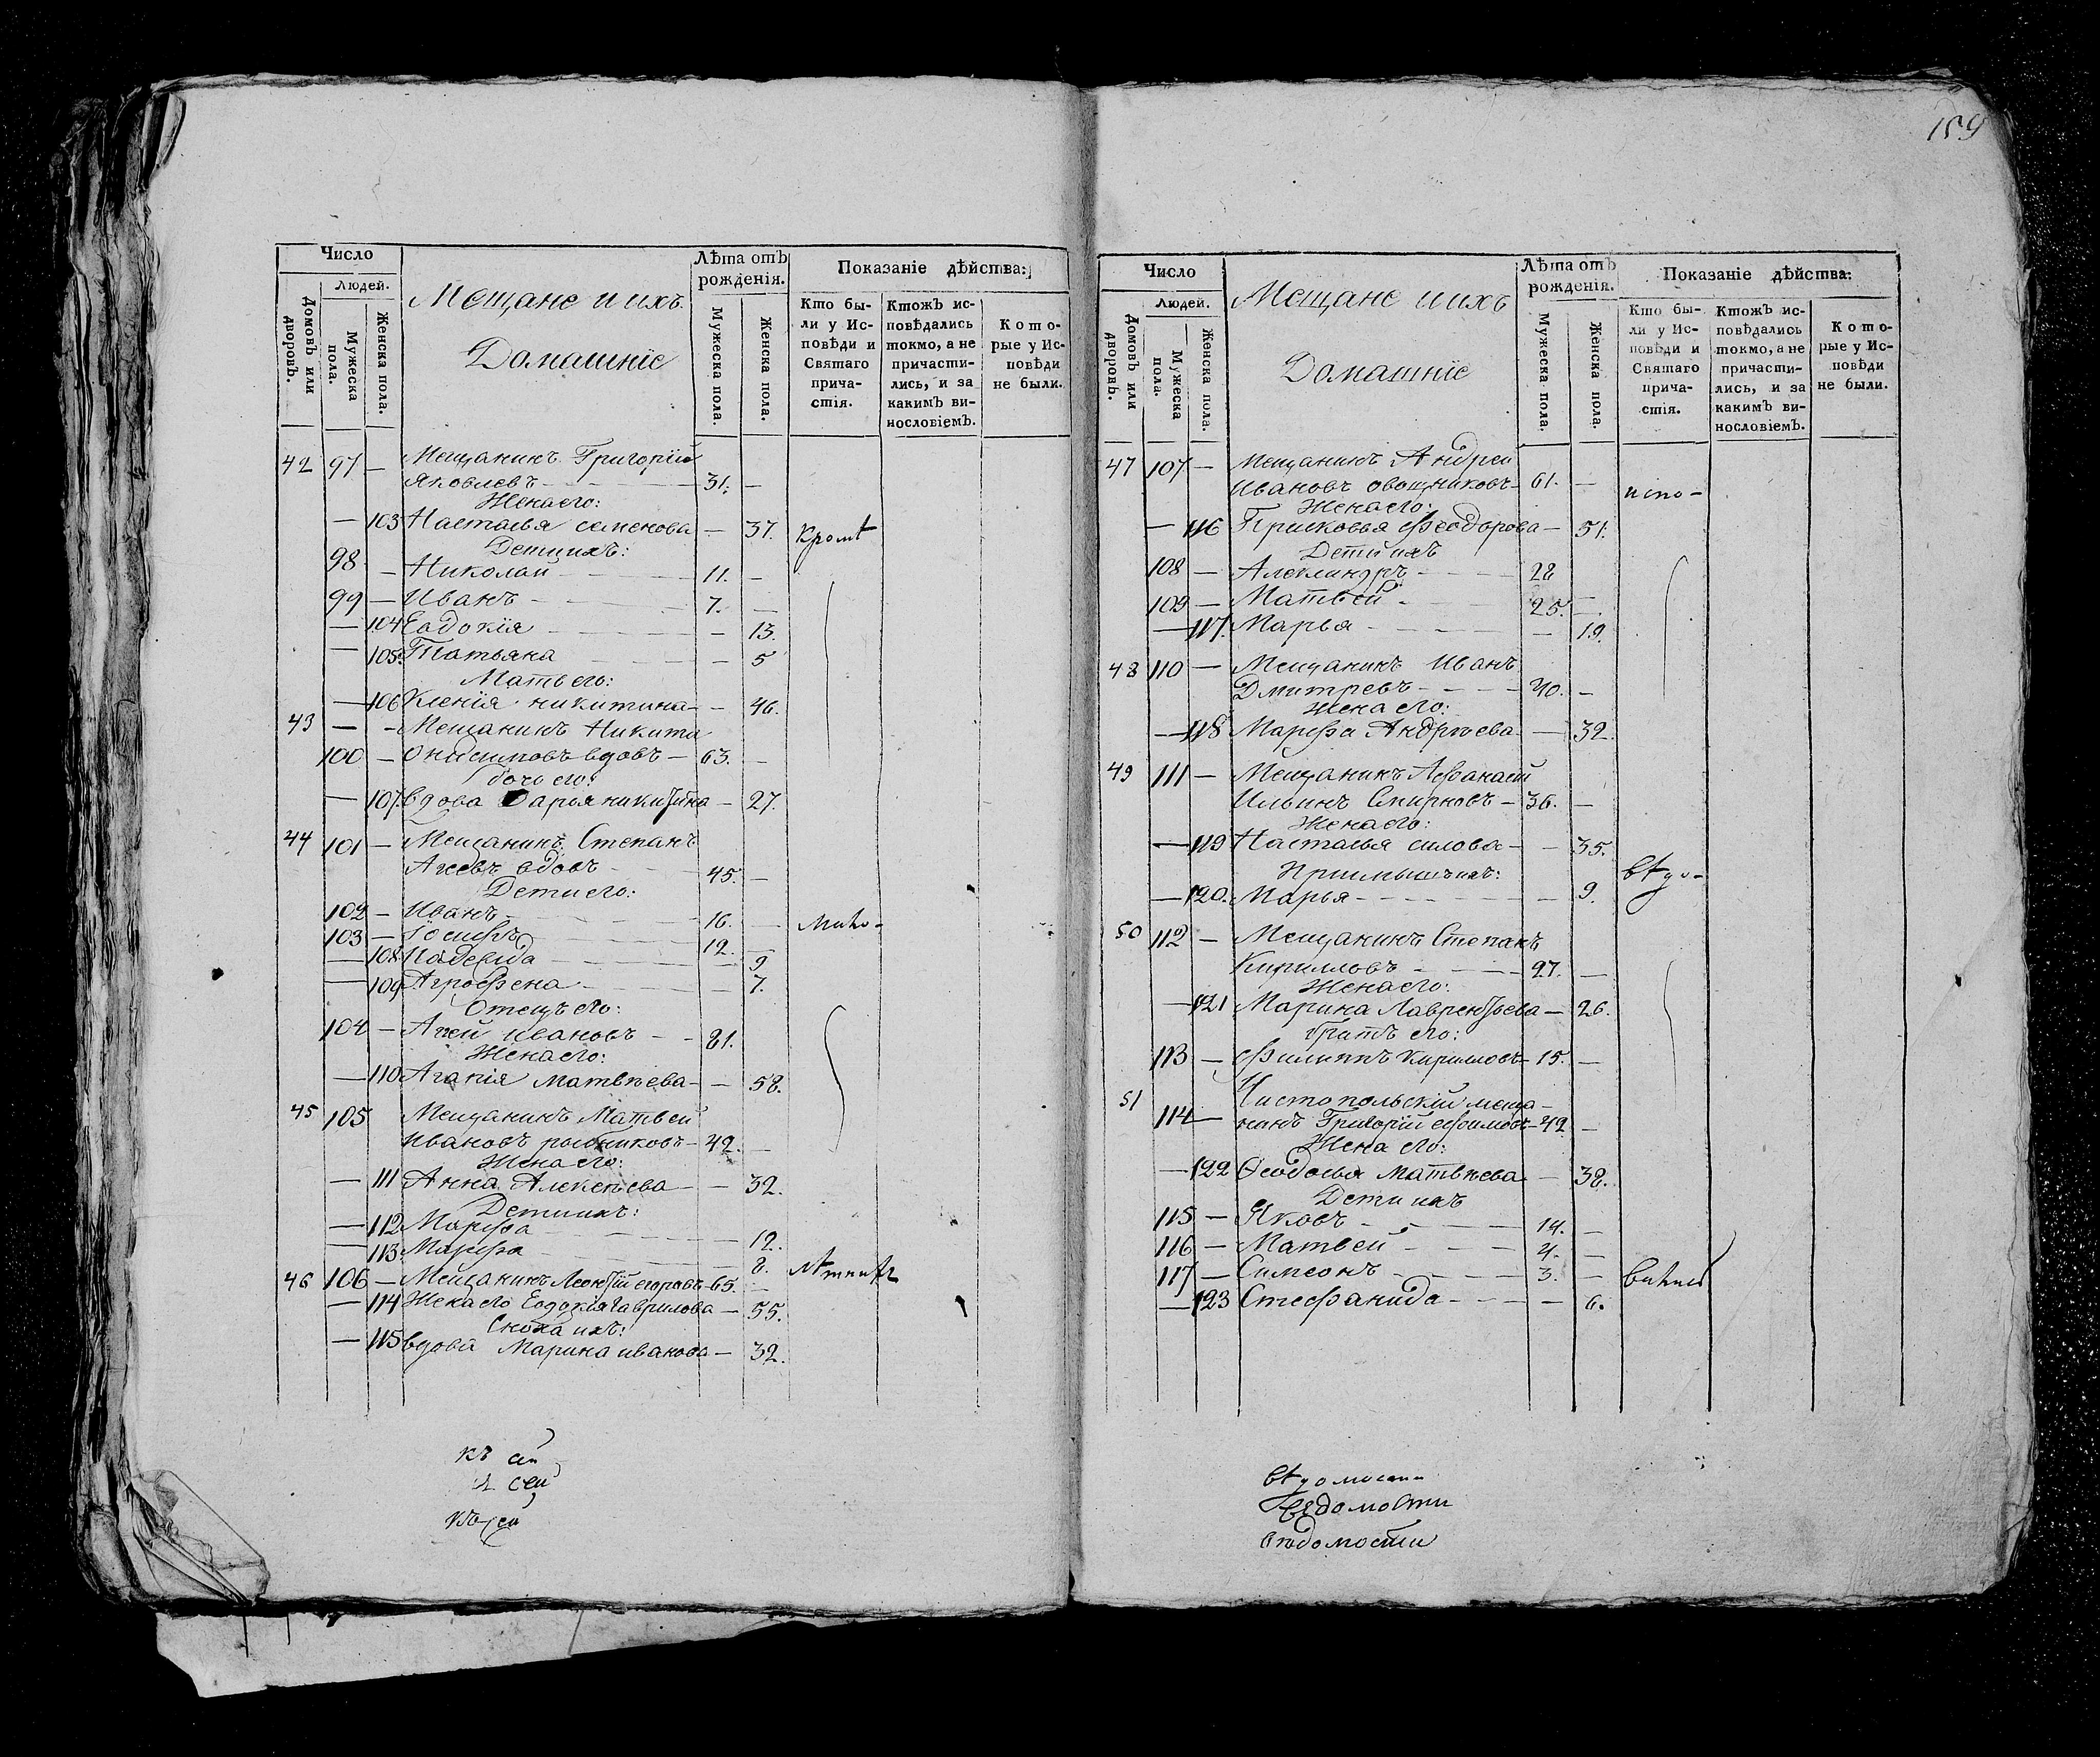 159
Число
Людей.
Домовъ или дворовъ.
Мужеска пола.
Женска пола.
Мещане и ихъ
Домашніе
Лѣта отъ рожденія.
Мужеска пола.
Женска пола.
Показаніе дѣйства:
Кто бы-
ли у Ис-
повѣди и
Святаго
прича-
стія.
Ктожъ ис-
повѣдались
токмо, а не
причасти-
лись, и за
какимъ ви-
нословіемъ.
Кото-
рые у Ис-
повѣди
не были.
42 97 — Мещанинъ Григорій
Яковлевъ — 31. —
Жена его:
— 103 Настасья семенова — 37. кромѣ
Дети ихъ:
98 — Николай — 11. —
99 — Иванъ — 7. —
— 104 Евдокія — 13.
— 105 Татьяна — 5
Мать его:
— 106 Ксенія никитина — 46.
43 — — Мещанинъ Никита
100 — Онисимовъ вдовъ — 63. —
дочь его:
— 107 вдова Дарья никитина — 27.
44 101 — Мещанинъ Степанъ
Агеевъ вдовъ — 45. —
Дети его:
102 — Иванъ — 16. —
103 — Іосифъ — 12. —
— 108 Надежда — 9
— 109 Агрофена — 7.
Отецъ его:
104 — Агей ивановъ — 81.
Жена его:
— 110 Агапія матвѣева — 58.
45 105 Мещанинъ Матвей
ивановъ рыбниковъ — 42. —
Жена его:
— 111 Анна Алексѣева — 32.
Дети ихъ:
— 112 Марфа — 12.
— 113 Марфа — 8.
46 106 — Мещанинъ Леонтій егоровъ — 65. —
— 114 Жена его Евдокія гаврилова — 55.
Сноха ихъ:
— 115 вдова Марина иванова — 32.
къ сей
къ сей
Число
Людей.
Домовъ или дворовъ.
Мужеска пола.
Женска пола.
Мещане и ихъ
Домашніе
Лѣта отъ рожденія.
Мужеска пола.
Женска пола.
Показаніе дѣйства:
Кто бы-
ли у Ис-
повѣди и
Святаго
прича-
стія.
Ктожъ ис-
повѣдались
токмо, а не
причасти-
лись, и за
какимъ ви-
нословіемъ.
Кото-
рые у Ис-
повѣди
не были.
47 107 — Мещанинъ Андрей
Ивановъ овощниковъ — 61. — испо-
Жена его:
— 116 Прасковья Феодорова — 51.
Дети ихъ
108 — Александръ — 28
109 — Матвей — 25. —
— 117 Марья — 19.
48 110 — Мещанинъ Иванъ
Дмитревъ — 40. —
жена его:
— 118 Марфа Андрѣева — 32.
49 111 — Мещанинъ Афанасій
Ильинъ Смирновъ — 36. —
Жена его:
— 119 Настасья силова — 35.
Приимышъ ихъ: вѣдо-
— 120. Марья — 9.
50 112 — Мещанинъ Степанъ
Кирилловъ — 27. —
Жена его:
— 121 Марина Лаврентьева — 26.
Братъ его:
113 — Филиппъ Кириловъ — 15. —
51 Чистопольскій меща-
114 — нинъ Григорій ефимовъ — 42 —
Жена его:
— 122 Феодосья матвѣева — 38.
Дети ихъ
115 — Яковъ — 14. —
116 — Матвей — 4. —
117 — Симеонъ — 3. —
— 123 Стефанида — 6.
вѣдомости
ведомости
вѣдомости